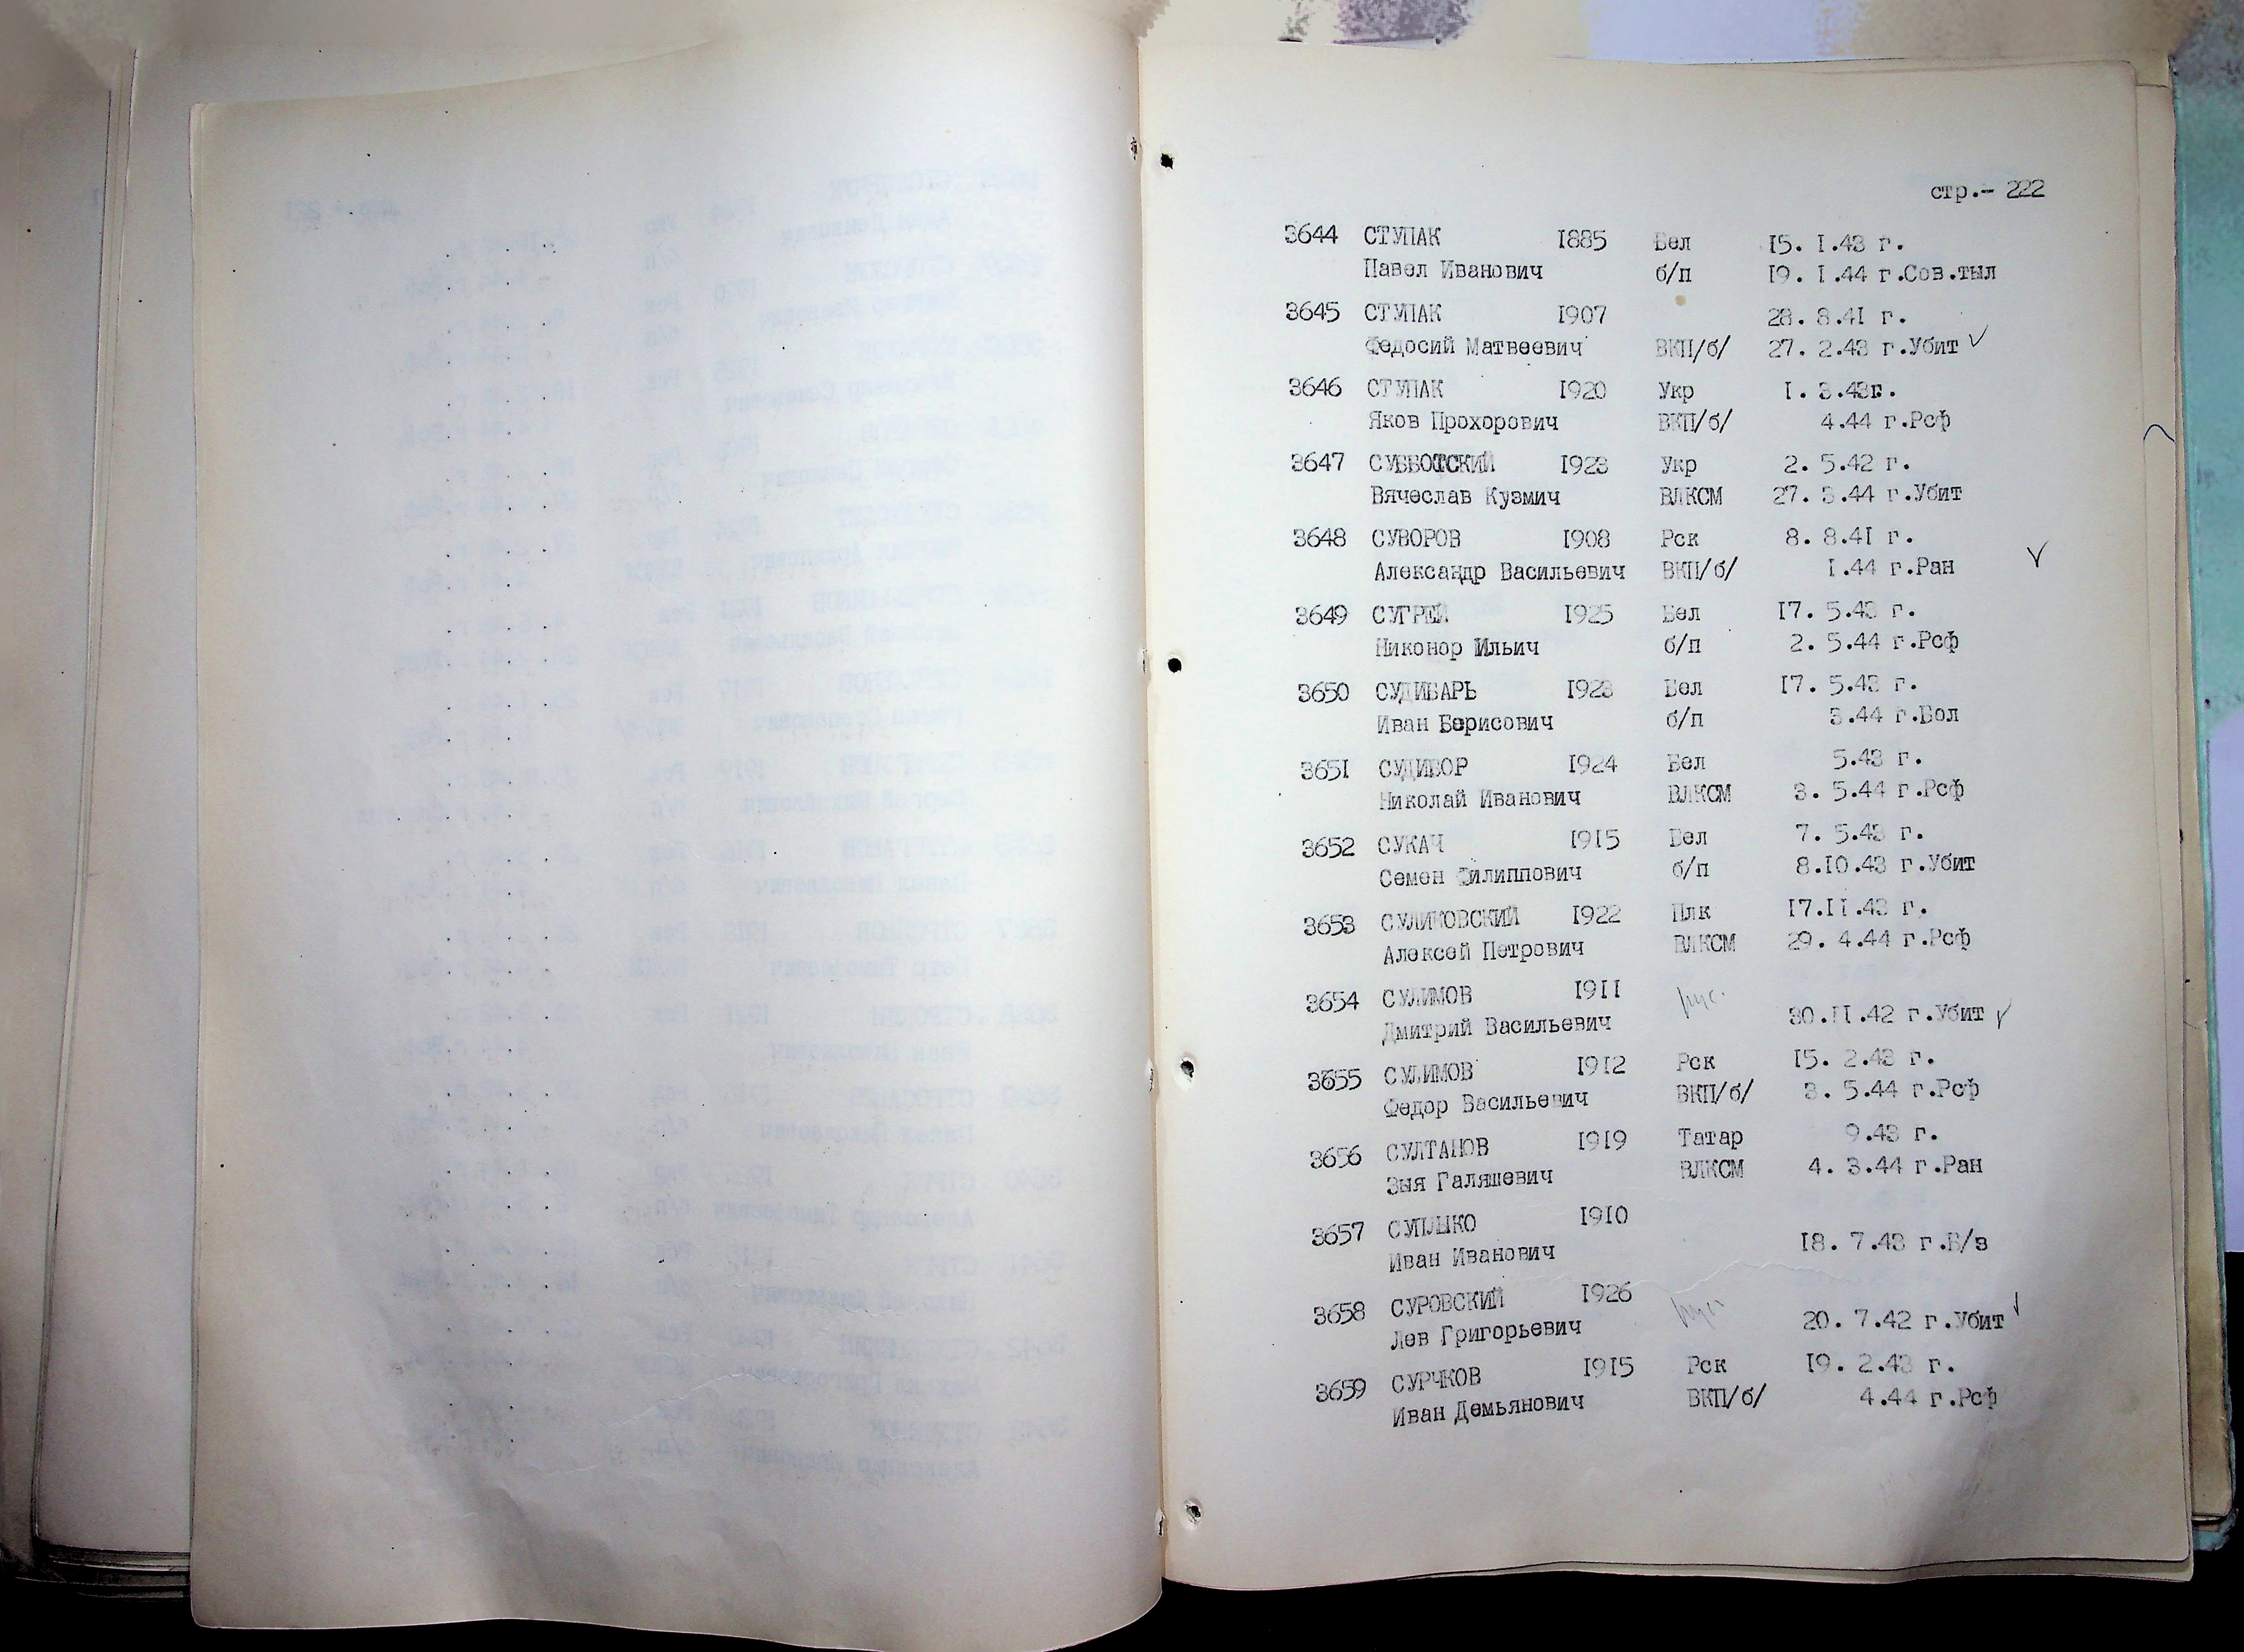 стр.- 222
3644 СТУПАК 1885 Бел 15. 1.43 г.
Павел Иванович б/п 19. 1.44 г.Сов.тыл
3645 СТУПАК 1907 28. 8.41 г.
Федосий Матвеевич ВКП/б/ 27. 2.43 г.Убит
3646 СТУПАК 1920 Укр 1. 3.43г.
Яков Прохорович ВКП/б/ 4.44 г.Рсф
3647 СУББОТСКИЙ 1923 Укр 2. 5.42 г.
Вячеслав Кузмич ВЛКСМ 27. 3.44 г.Убит
3648 СУВОРОВ 1908 Рск 8. 8.41 г.
Александр Васильевич ВКП/б/ 1.44 г.Ран
3649 СУГРЕЙ 1925 Бел 17. 5.43 г.
Никонор Ильич б/п 2. 5.44 г.Рсф
3650 СУДИБАРЬ 1923 Бел 17. 5.43 г.
Иван Борисович б/п 3.44 г.Бол
3651 СУДИВОР 1924 Бел 5.43 г.
Николай Иванович ВЛКСМ 3. 5.44 г.Рсф
3652 СУКАЧ 1915 Бел 7. 5.43 г.
Семен Филиппович б/п 8.10.43 г.Убит
3653 СУЛИКОВСКИЙ 1922 Плк 17.11.43 г.
Алексей Петрович ВЛКСМ 29. 4.44 г.Рсф
3654 СУЛИМОВ 1911 рус.
Дмитрий Васильевич 30.11.42 г.Убит
3655 СУЛИМОВ 1912 Рск 15. 2.43 г.
Федор Васильевич ВКП/б/ 3. 5.44 г.Рсф
3656 СУЛТАНОВ 1919 Татар 9.43 г.
Зыя Галяшевич ВЛКСМ 4. 3.44 г.Ран
3657 СУПЫКО 1910
Иван Иванович 18. 7.43 г.Б/з
3658 СУРОВСКИЙ 1926 рус
Лев Григорьевич 20. 7.42 г.Убит
3659 СУРЧКОВ 1915 Рск 19. 2.43 г.
Иван Демьянович ВКП/б/ 4.44 г.Рсф